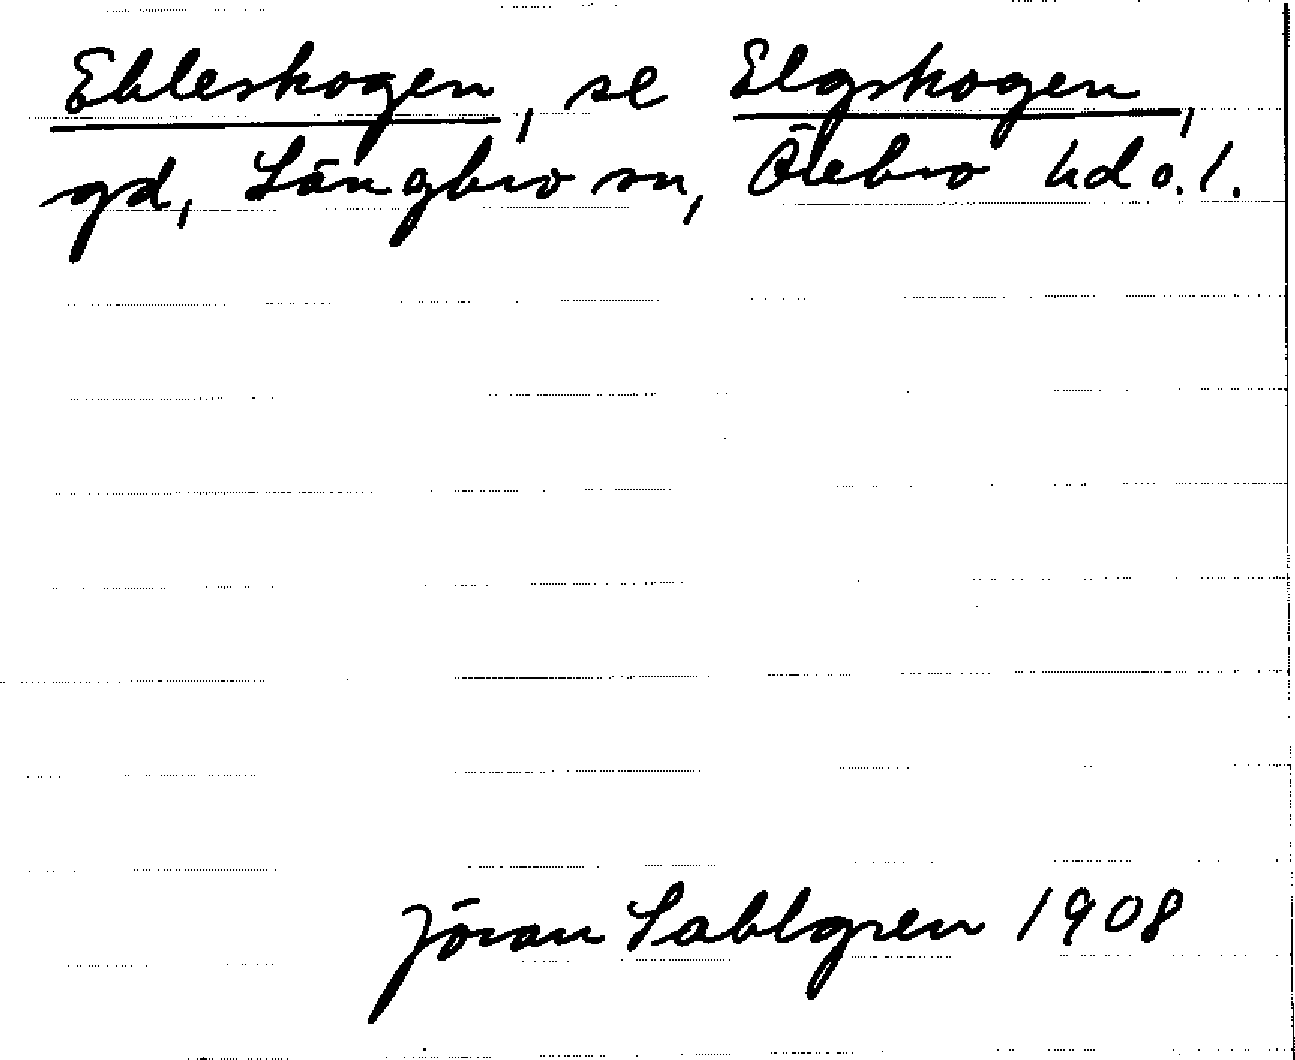 Ehleskogen, se Elgskogen,
gd, Längbro sn, Örebro hd o.l.
Jöran Sahlgren 1908